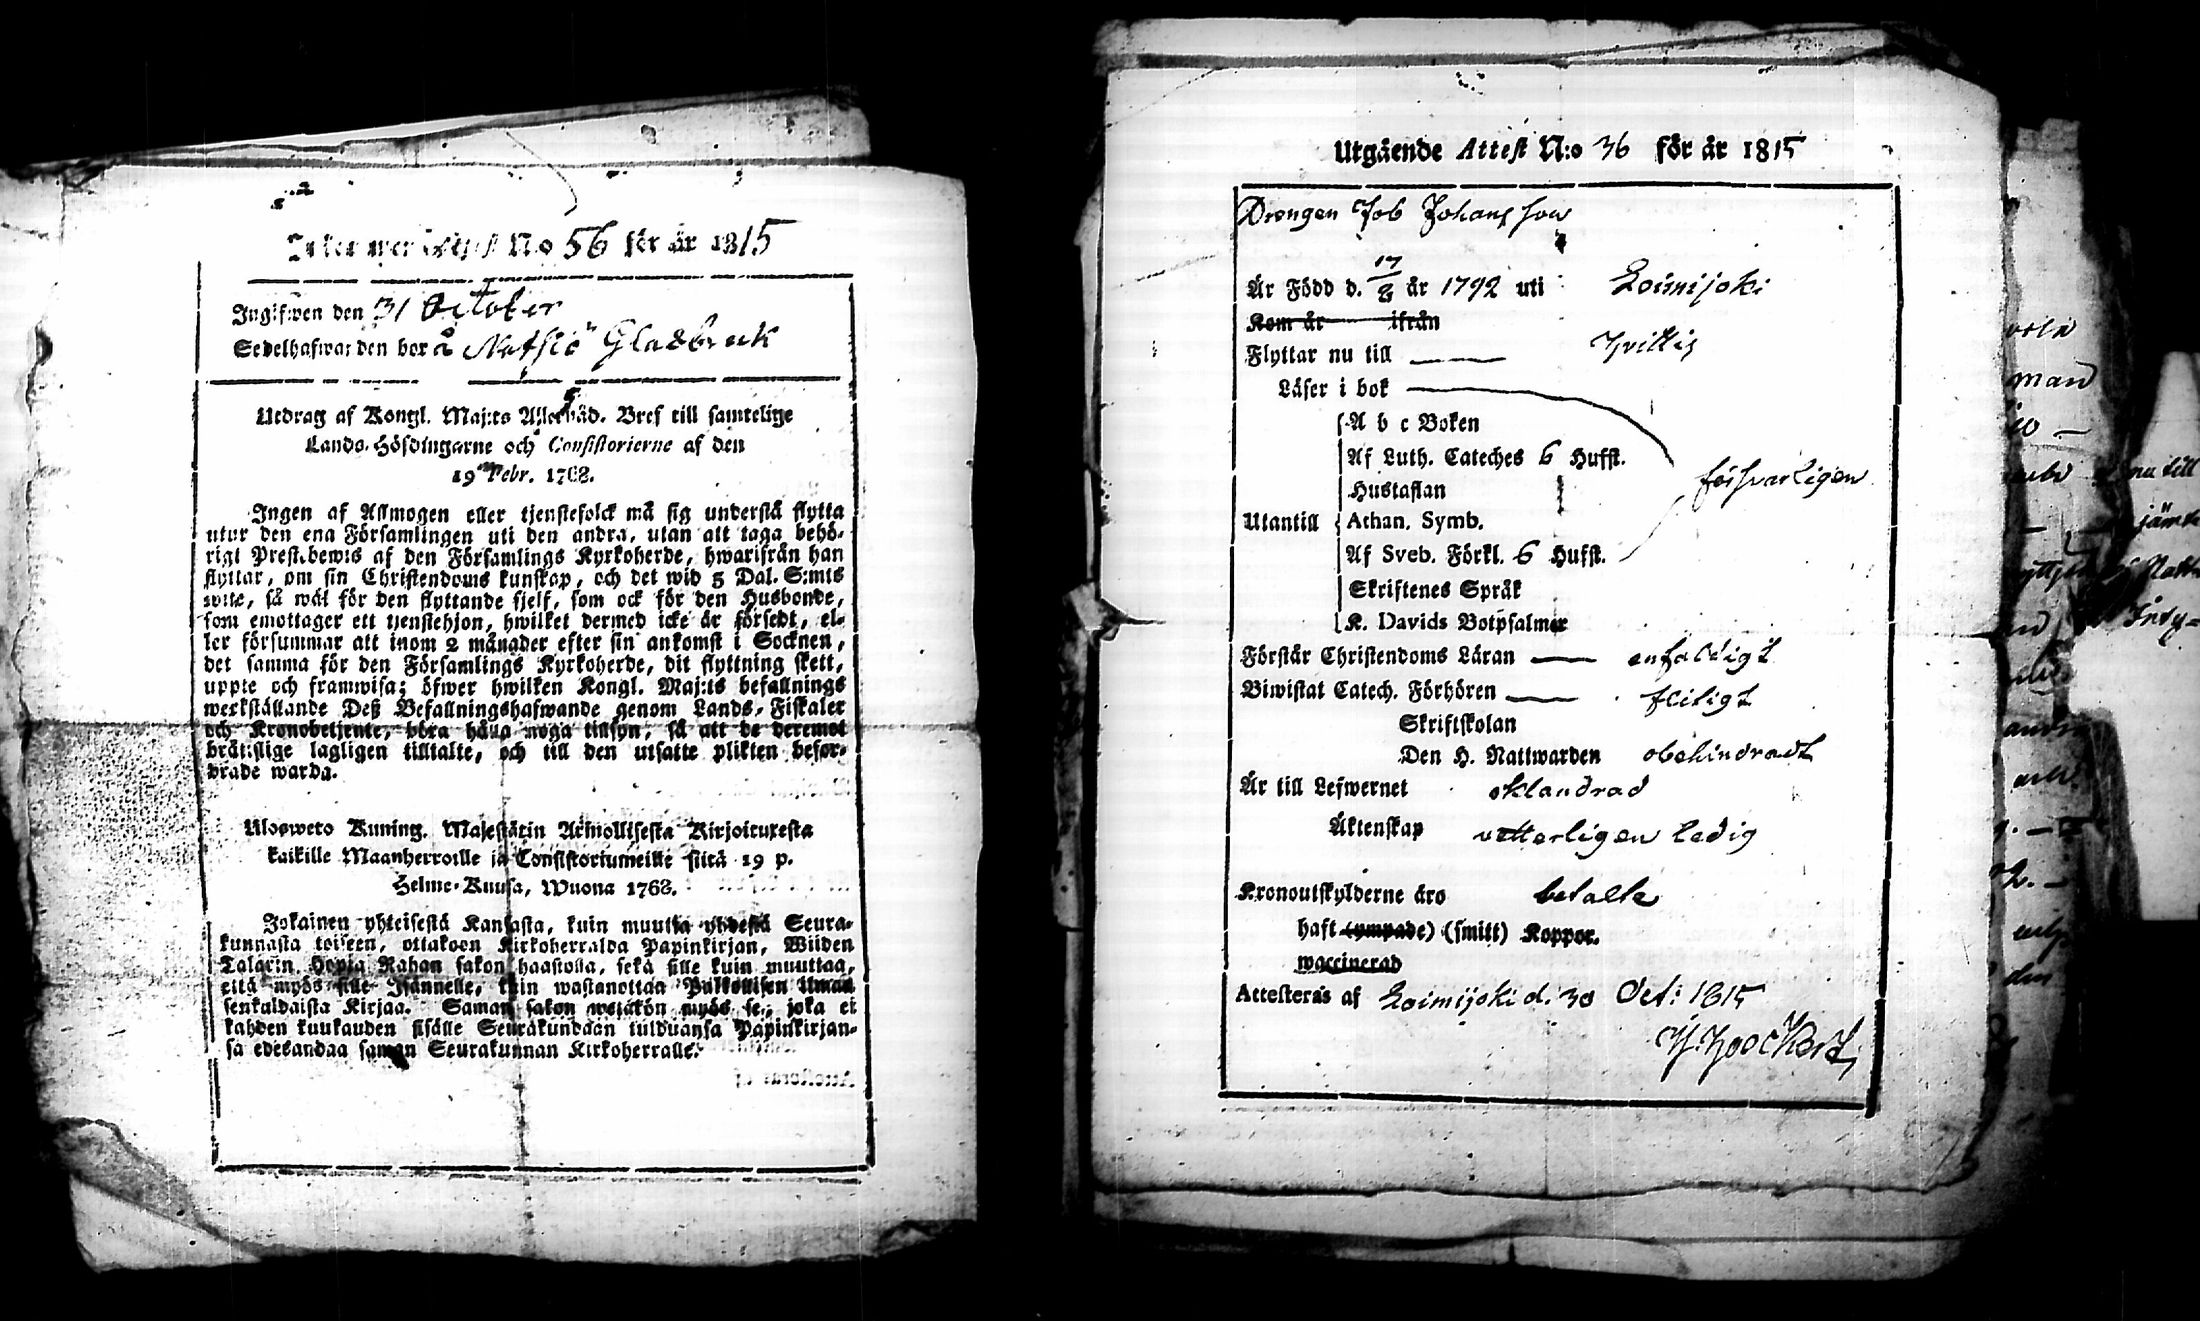 Attest No 56 för år 1815
Ingifwen den 31 October
Sedelhafwanden bor å Nutsiö Glasbruk
Utdrag af Kongl. Maj:ts Allernåd. Bref till samtelige
Lands-Höfdingarne och Consistorierne af den
19 Febr. 1768.
Ingen af Allmogen eller tjenstefolck må sig understå flytta
utur den ena Församlingen uti den andra, utan att taga behö-
rigt Prest-bewis af den Församlings Kyrkoherde, hwarifrån han
flyttar, om sin Christendoms kunskap, och det wid 5 Dal. S:mts
wite, så wäl för den flyttande sjelf, som ock för den Husbonde,
som emottager ett tjenstehjon, hwilket dermed icke är försedt, el-
ler försummar att inom 2 månader efter sin ankomst i Socknen,
det samma för den Församlings Kyrkoherde, dit flyttning skett,
uppte och framwisa; öfwer hwilken Kongl. Maj:ts befallnings
werkställande Deß Befallningshafwande genom Lands-Fiskaler
och Kronobetjente, böra hålla noga tillsyn, så att de deremot
brättslige lagligen tilltalte, och till den utsatte plikten befor-
drade warda.
Ulosweto Kuning. Majestätin Armollisesta Kirjoituxesta
kaikille Maanherroille ja Consistoriumeille siitä 19 p.
Helme-Kuusa, Wuona 1768.
Jokainen yhteisestä Kansasta, kuin muutta yhdestä Seura-
kunnasta toiseen, ottakoon Kirkoherralda Papinkirjan, Wiiden
Talarin Hopia Rahan sakon haastolla, sekä sille kuin muuttaa,
että myös sille Isännelle, kuin wastanottaa Palkollisen ilman
senkaldaista Kirjaa. Saman sakon wetäkön myös se, joka ei
kahden kuukauden sisälle Seurakundaan tulduansa Papinkirjan-
sa edesandaa saman Seurakunnan Kirkoherralle.
Utgående Attest N:o 36 för år 1815
Drengen Job Johansson
Är Född d. 17/8 år 1792 uti Loimijoki
Kom år ifrån
Flyttar nu till Hvittis
Läser i bok
A b c Boken
Af Luth. Cateches 6 Hufst.
Hustaflan
försvarligen
Utantill Athan. Symb.
Af Sveb. Förkl. 6 Hufst.
Skriftenes Språk
K. Davids Botpsalmer
Förstår Christendoms Läran enfaldigt
Biwistat Catech. Förhören flitigt
Skriftskolan
Den H. Nattwarden obehindradt
Är till Lefwernet oklandrad
Äktenskap vetterligen ledig
Kronoutskylderne äro betalte
haft (ympade) (smitt) Koppor.
waccinerad
Attesteras af Loimijoki d. 30 Oct: 1815